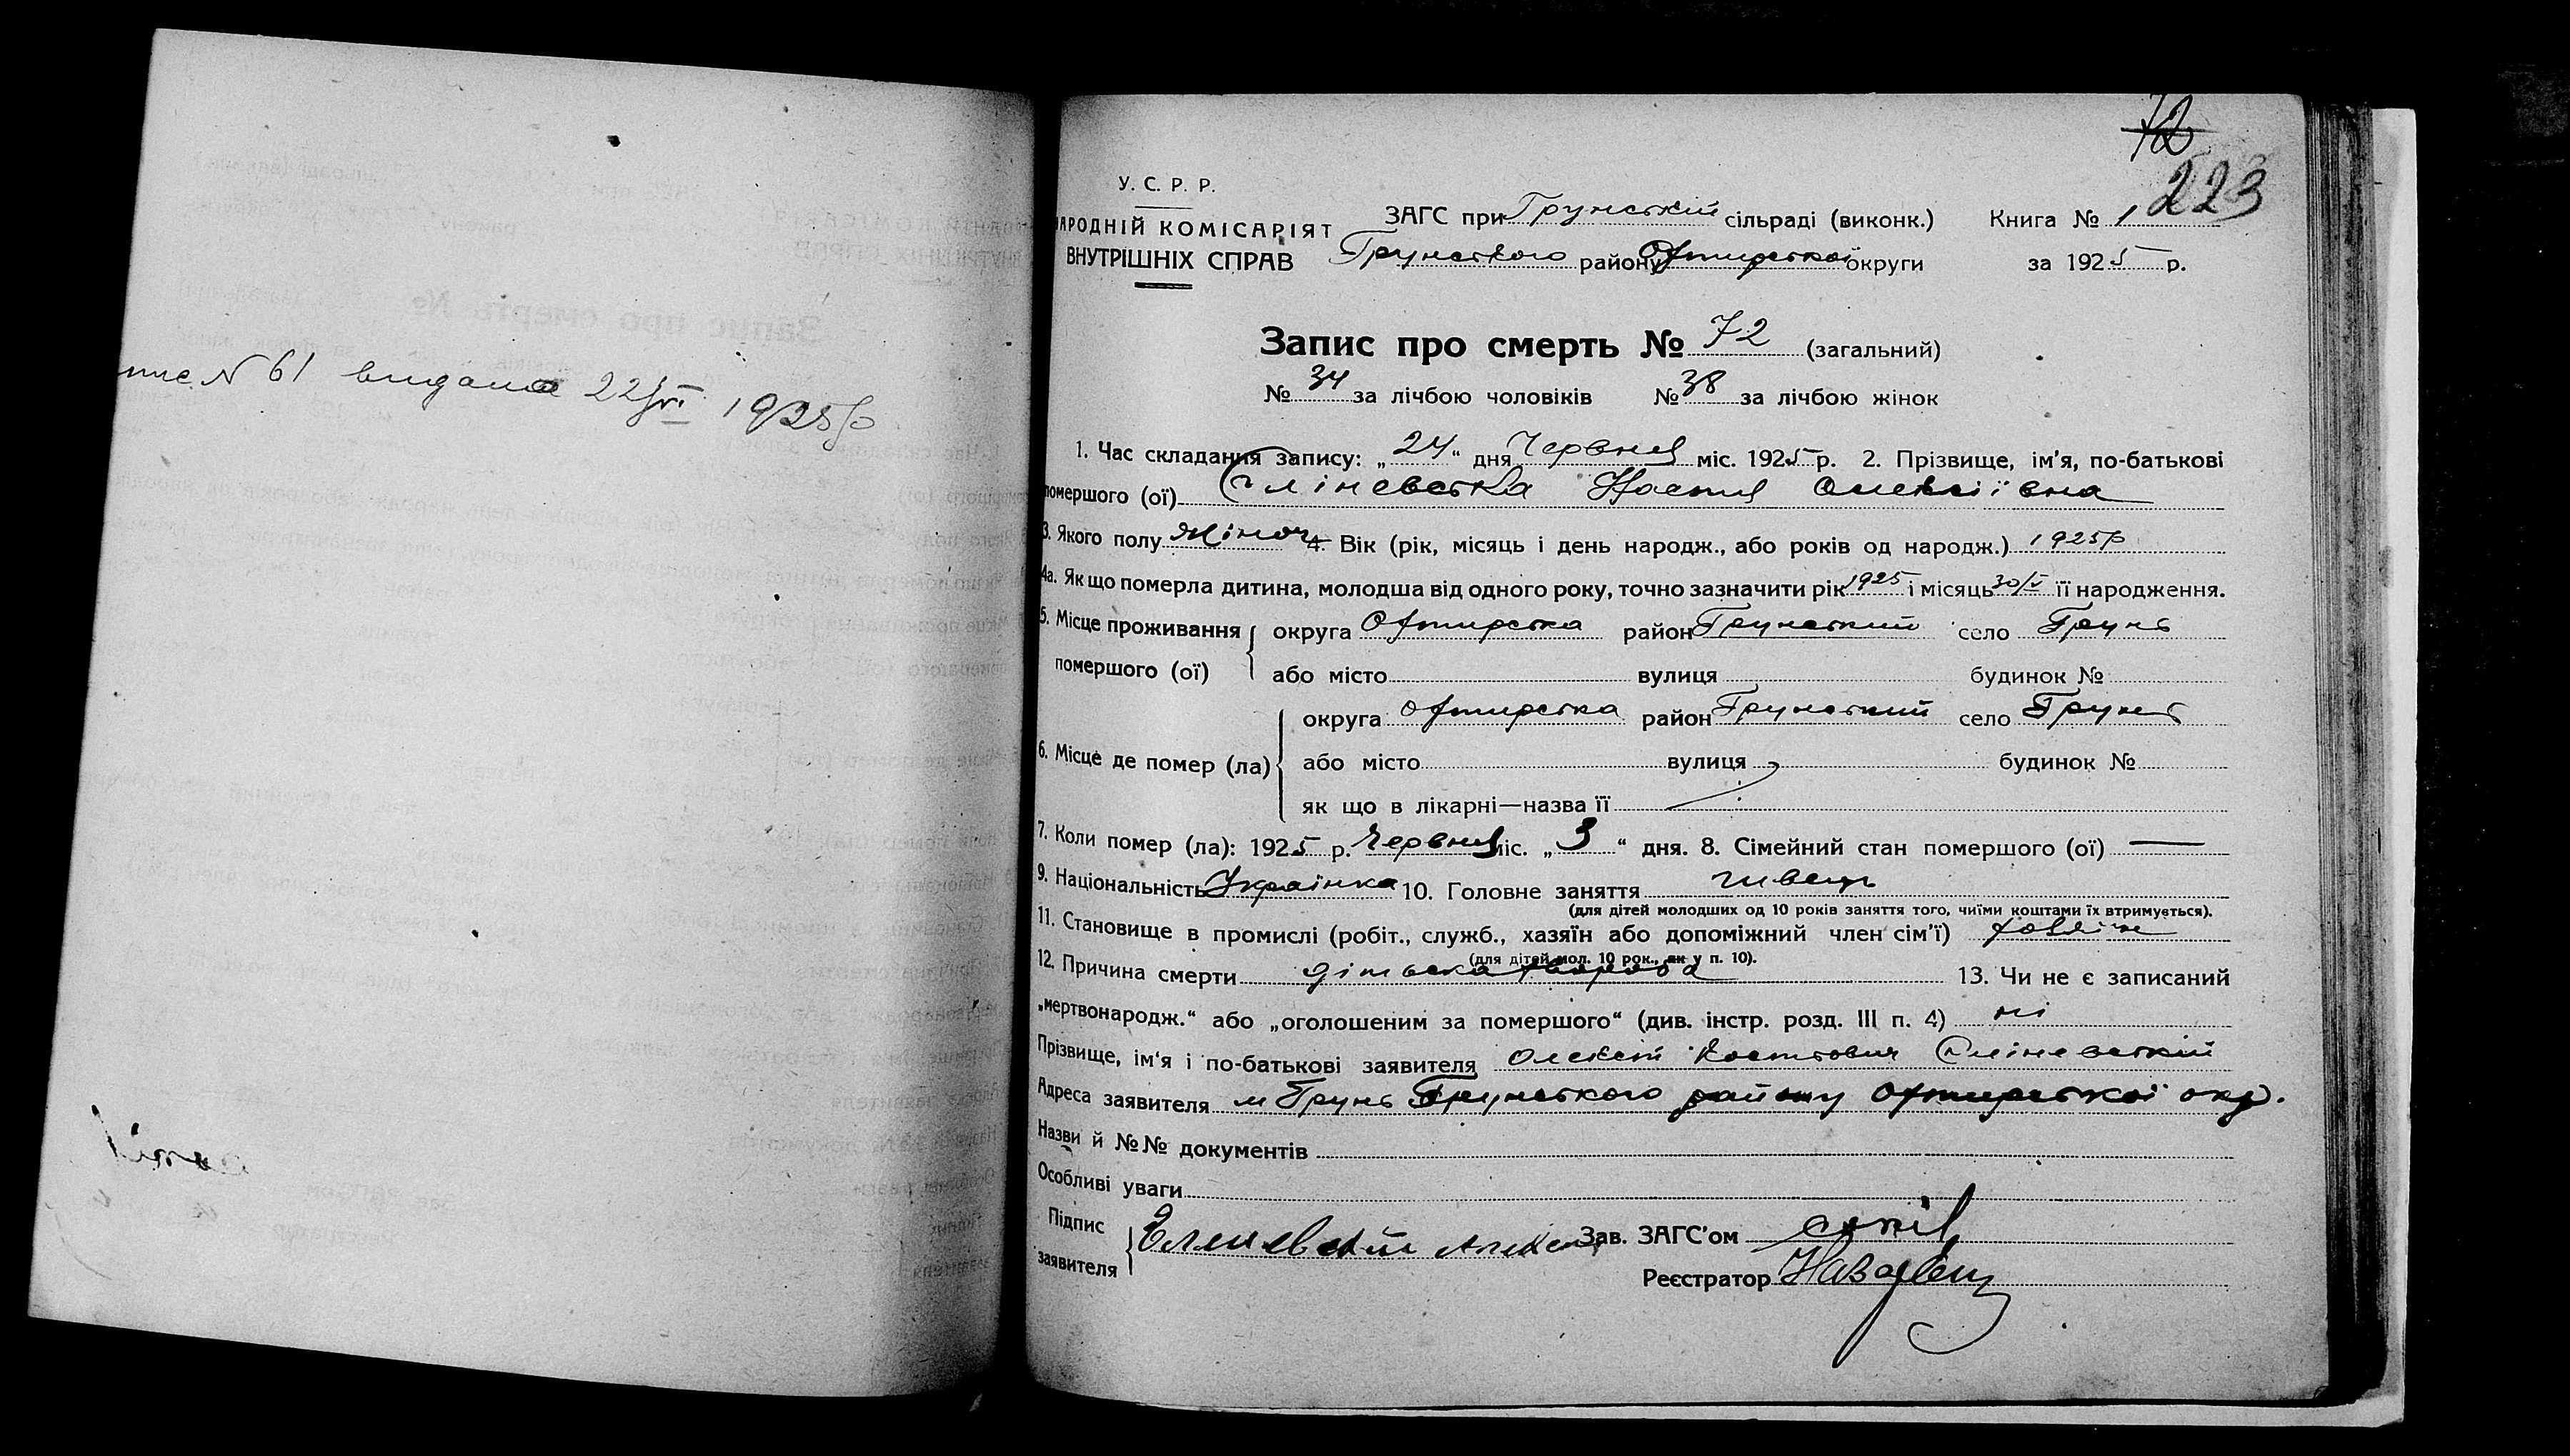 № 61 видана 22/VI 1925р
72
223
У. С. Р. Р.
НАРОДНІЙ КОМІСАРІЯТ
ВНУТРІШНІХ СПРАВ
ЗАГС при Грунській сільраді (виконк.) Книга № 1
Грунського району Охтирської округи за 1925 р.
Запис про смерть № 72 (загальний)
№ 34 за лічбою чоловіків № 38 за лічбою жінок
1. Час складання запису: „24“ дня Червня міс. 1925 р. 2. Прізвище, ім’я, по-батькові
помершого (ої) Єліневська Настя Олексіївна
3. Якого полу жіноч 4. Вік (рік, місяць і день народж., або років од народж.) 1925р
4а. Як що померла дитина, молодша від одного року, точно зазначити рік 1925 і місяць 30/V її народження.
5. Місце проживання помершого (ої) округа Охтирська район Грунський село Грунь
або місто вулиця будинок №
6. Місце де помер (ла) округа Охтирська район Грунський село Грунь
або місто вулиця будинок №
як що в лікарні—назва її
7. Коли помер (ла): 1925 р. Червня міс. „3“ дня. 8. Сімейний стан помершого (ої) —
9. Національність Українка 10. Головне заняття швець
(для дітей молодших од 10 років заняття того, чиїми коштами їх втримується).
11. Становище в промислі (робіт., служб., хазяїн або допоміжний член сім’ї) хазяїн
(для дітей мол. 10 рок., як у п. 10).
12. Причина смерти дітська хвороба 13. Чи не є записаний
„мертвонародж.“ або „оголошеним за помершого“ (див. інстр. розд. III п. 4) ні
Прізвище, ім‘я і по-батькові заявителя Олексій Костьович Єліневський
Адреса заявителя м Грунь Грунського району Охтирської окр.
Назви й №№ документів
Особливі уваги
Підпис заявителя Еленевский Алексей Зав. ЗАГС’ом
Реєстратор